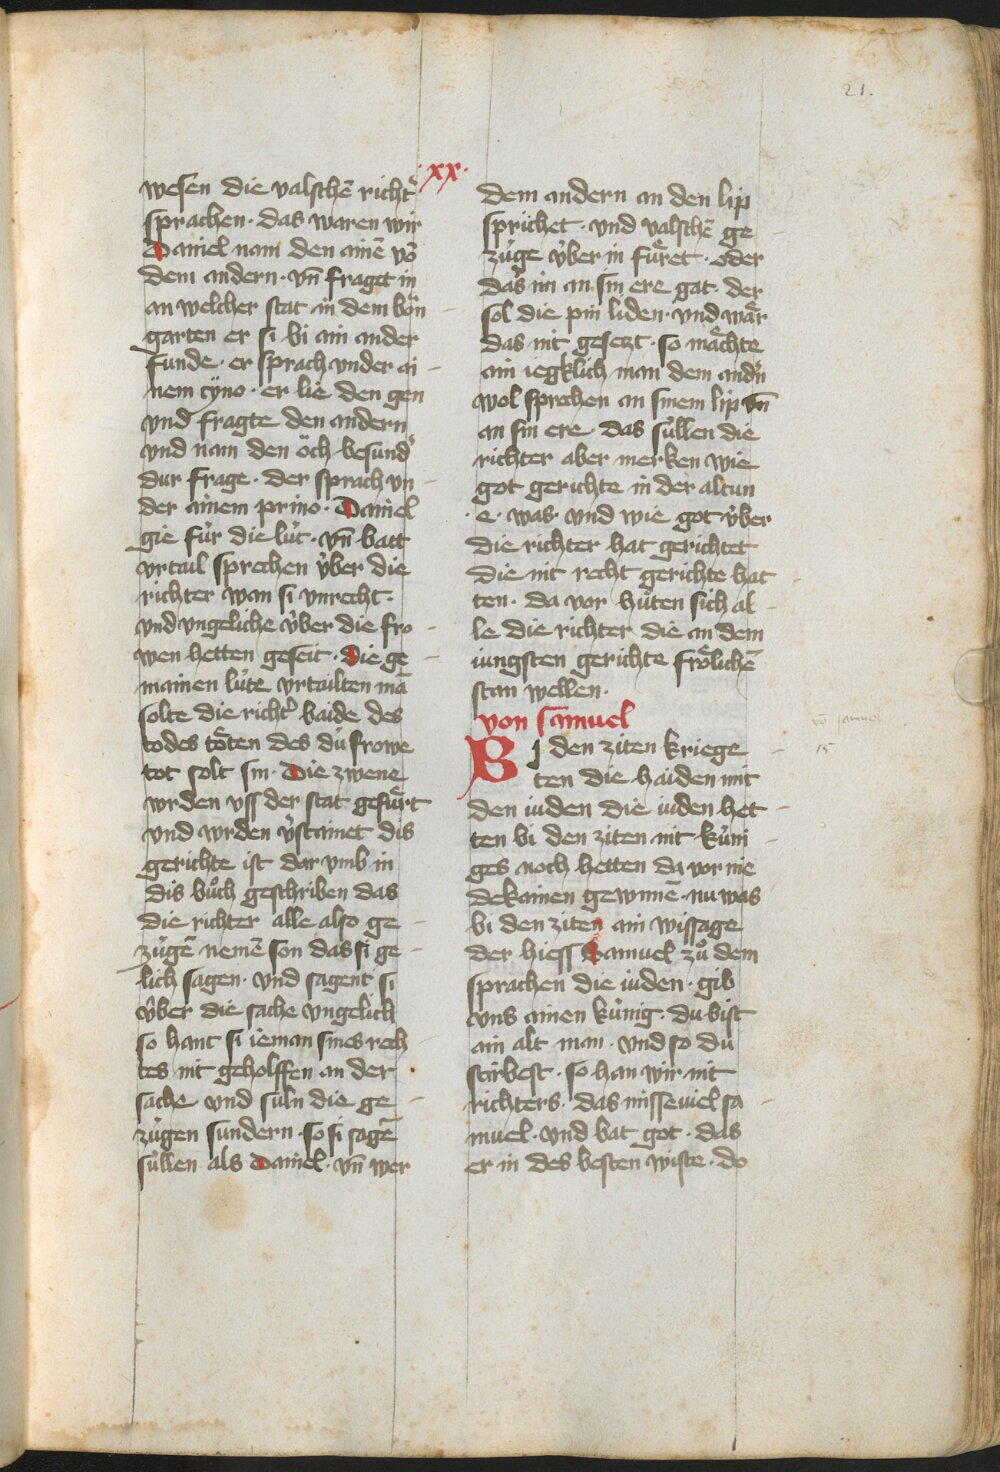 21.
·xx·
wesen die valschē richt͛
sprachen · das waren wir
Daniel nam den ainē vō
dem andern · vn̄ fraget in
an welcher stat in dem bōn
garten er si bi ain ander
funde · er sprach vnder ai
nem cÿno · er lie den gen
vnd fragte den andern
vnd nam den öch besund͛
dur frage · der sprach vn
der ainem prino · Daniel
gie fu̍r die lu̍t · vn̄ batt
vrtail sprechen v̍ber die
richter wan si vnrecht ·
vnd vngeliche v̍ber die fro
wen hetten geseit · Die ge
mainen lu̍te vrtailten mā
solte die richt͛ baide des
todes to̎ten des du̍ frowe
tot solt sin · Die zwene
wrden vss der stat gefu̎rt
vnd wrden v͛stainet dis
gerichte ist dar vmb in
dis bůch geschriben das
die richter alle also ge
zu̍gē nemē son das si ge
lich sagen · vnd sagent si
v̍ber die sache vngelich
so hant si ieman sines reh
tes nit geholffen an der
sache vnd suln die ge
zu̍gen sundern · so si sagē
su̍llen als Daniel · vn̄ wer
dem andern an den lip
sprichet · vnd valschē ge
zu̍ge v̍ber in fu̎ret · oder
das im an sin ere gat · der
sol die pin liden · vnd wa̎r
das nit gesetzt · so ma̎chte
ain iegklich man dem and͛n
wol sprechen an sinem lip vn̄
an sin ere · das su̍llen die
richter aber merken wie
got gerichte in der altun
· e · was · vnd wie got v̍ber
die richter hat gerichtet
die nit recht gerichte hat
ten · da vor hůten sich al
le die richter die an dem
iungsten gerichte fro̎lichē
stan wellen ·
von samuel
vō samuel
15
BI den ziten kriege
ten die haiden mit
den iuden die iuden het
ten bi den ziten nit ku̍ni
ges noch hetten da vor nie
dekainen gewinnē · nu was
bi den ziten ain wissage
der hiess Samuel zů dem
sprachen die iuden · gib
vns ainen ku̍nig · du bist
ain alt man · vnd so du
stirbest · so han wir nit
richters · das misseviel sa
muel · vnd bat got · das
er in des besten wiste · do